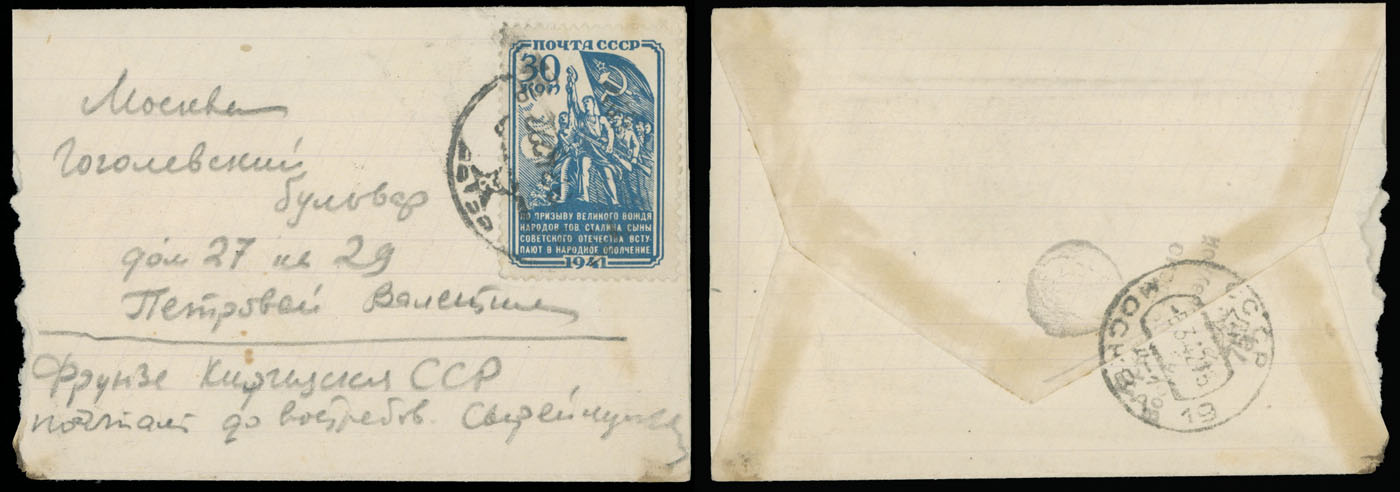 Москва
Гоголевский
бульвар
дом 27 кв 29
Петровой Валентине
Фрунзе Киргизская ССР
почтамт до востребов.
ПОЧТА СССР
30
КОП
ПО ПРИЗЫВУ ВЕЛИКОГО ВОЖДЯ
НАРОДОВ ТОВ. СТАЛИНА СЫНЫ
СОВЕТСКОГО ОТЕЧЕСТВА ВСТУ-
ПАЮТ В НАРОДНОЕ ОПОЛЧЕНИЕ
1941
МОСКВА
СССР
19